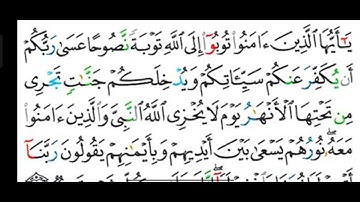 يَـٰٓأَيُّهَا ٱلَّذِينَ ءَامَنُوا۟ تُوبُوٓا۟ إِلَى ٱللَّهِ تَوْبَةً نَّصُوحًا عَسَىٰ رَبُّكُمْ
أَن يُكَفِّرَ عَنكُمْ سَيِّـَٔاتِكُمْ وَيُدْخِلَكُمْ جَنَّـٰتٍ تَجْرِى
مِن تَحْتِهَا ٱلْأَنْهَـٰرُ يَوْمَ لَا يُخْزِى ٱللَّهُ ٱلنَّبِىَّ وَٱلَّذِينَ ءَامَنُوا۟
مَعَهُۥ نُورُهُمْ يَسْعَىٰ بَيْنَ أَيْدِيهِمْ وَبِأَيْمَـٰنِهِمْ يَقُولُونَ رَبَّنَآ